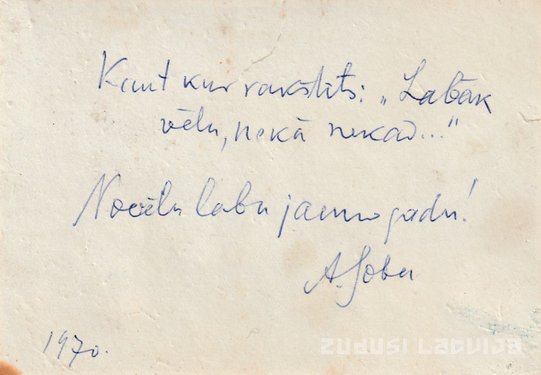 Kaut kur rakstīts: „Labāk
vēlu, nekā nekad..."
Novēlu labu jauno gadu!
A.
1970.
ZUDUSI LATVIJA